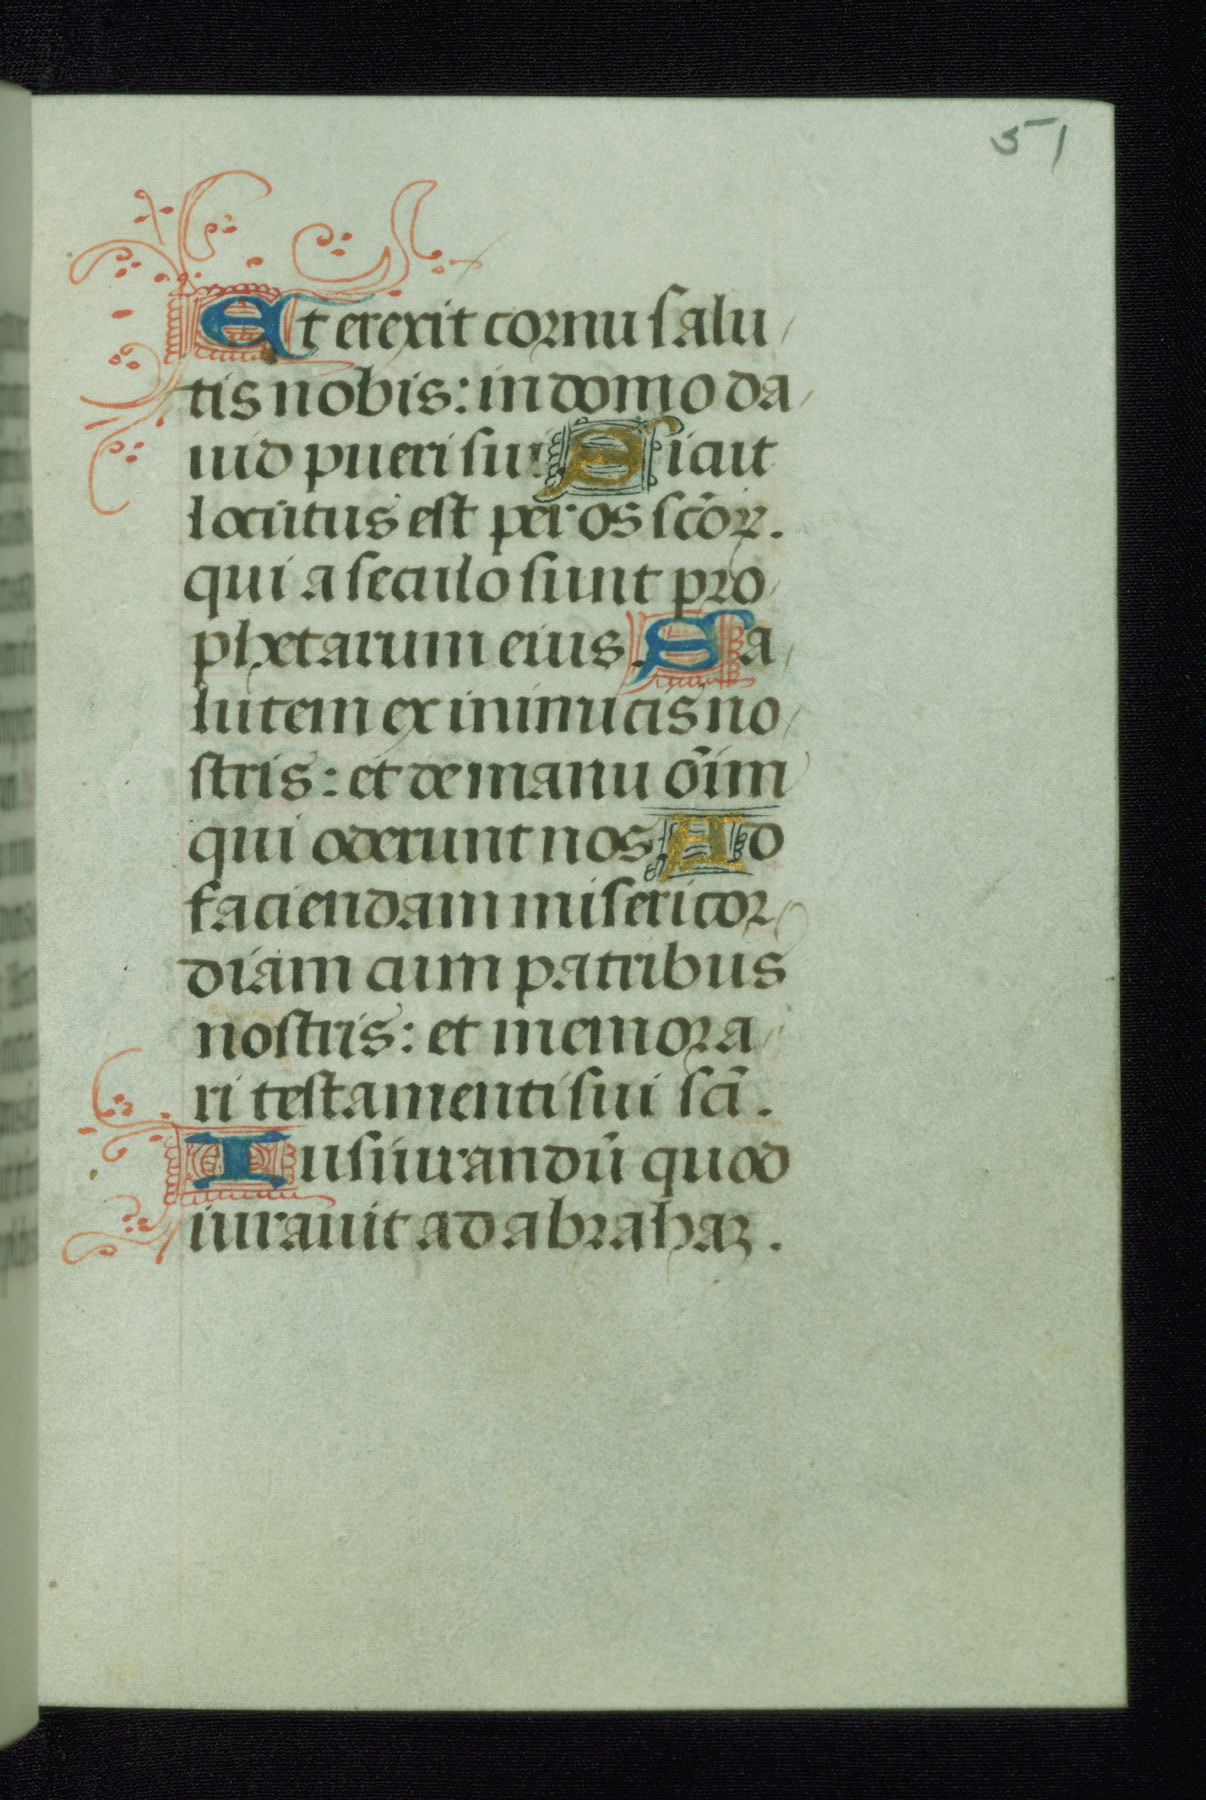 51
Et erexit cornu salu
tis nobis: in domo da
uid pueri sui Sicut
locutus est per os scõꝝ.
qui a seculo sunt pro
phetarum eius. Sa
lutem ex inimicis no
stris: et de manu oĩm
qui oderunt nos. Ad
faciendam misericor
diam cum patribus
nostris: et memora
ri testamenti sui scĩ.
Iusiurandũ quod
iurauit ad abrahaꝫ.